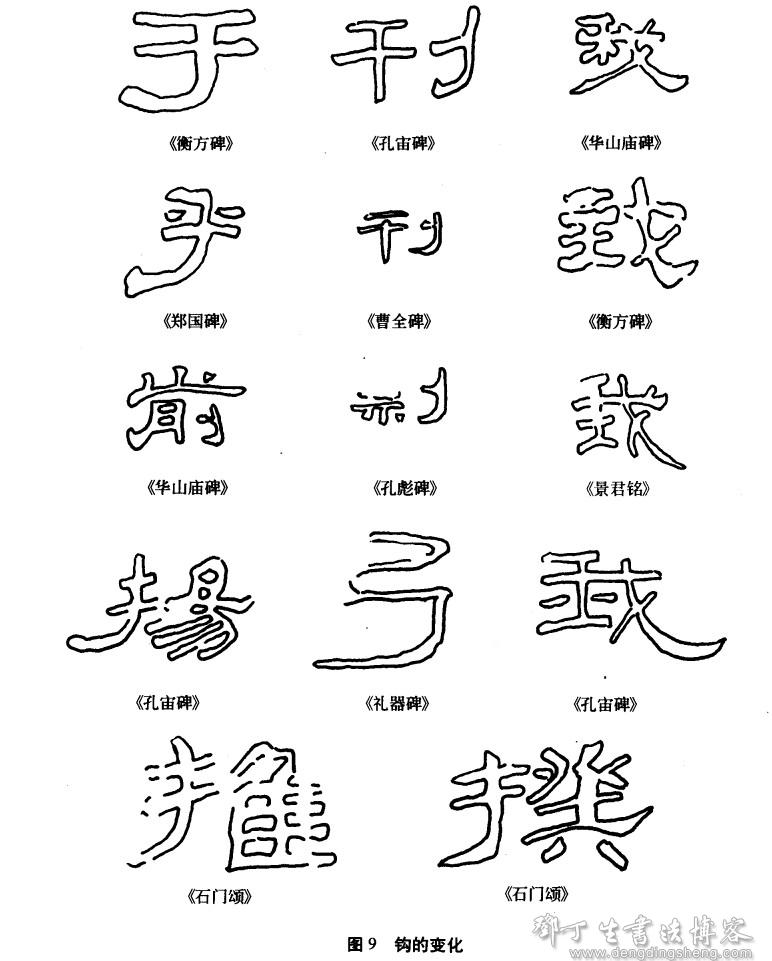 于 刊 我
《衡方碑》 《孔宙碑》 《华山庙碑》
乎 刊 我
《郑国碑》 《曹全碑》 《衡方碑》
前 我
《华山庙碑》 《孔彪碑》 《景君铭》
揚 弓 我
《孔宙碑》 《礼器碑》 《孔宙碑》
《石门颂》 《石门颂》
图9 钩的变化
鄧丁生書法博客
www.dengdingsheng.com